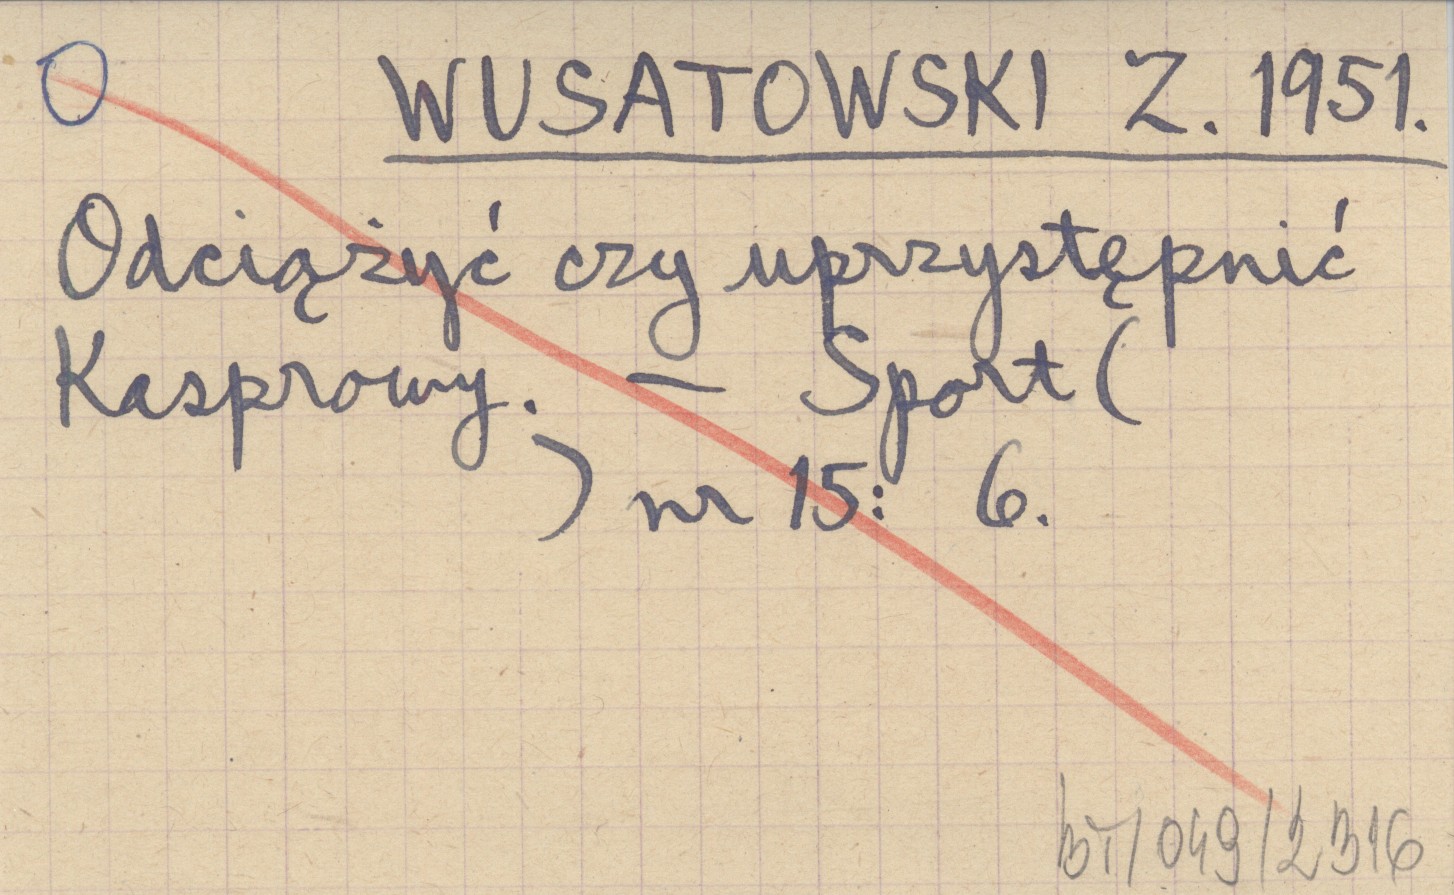 O WUSATOWSKI Z. 1951.
Odciążyć czy uprzystępnić
Kasprowy. — Sport (
) nr 15: 6.
BT/049/2316